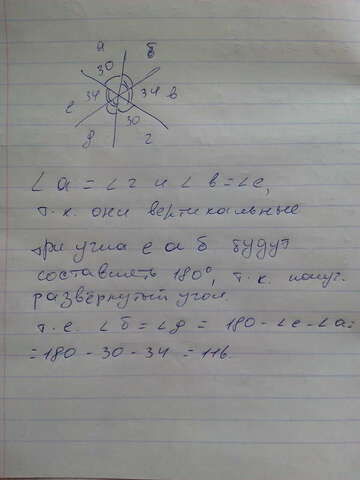 а б
30
е 34 34 в
30
д г
∠ а = ∠ г и ∠ в = ∠ е,
т.к. они вертикальные
три угла е а б будут
составлять 180°, т.к. получ.
развёрнутый угол.
т.е. ∠ б = ∠ д = 180 - ∠ е - ∠ а =
= 180 - 30 - 34 = 116.